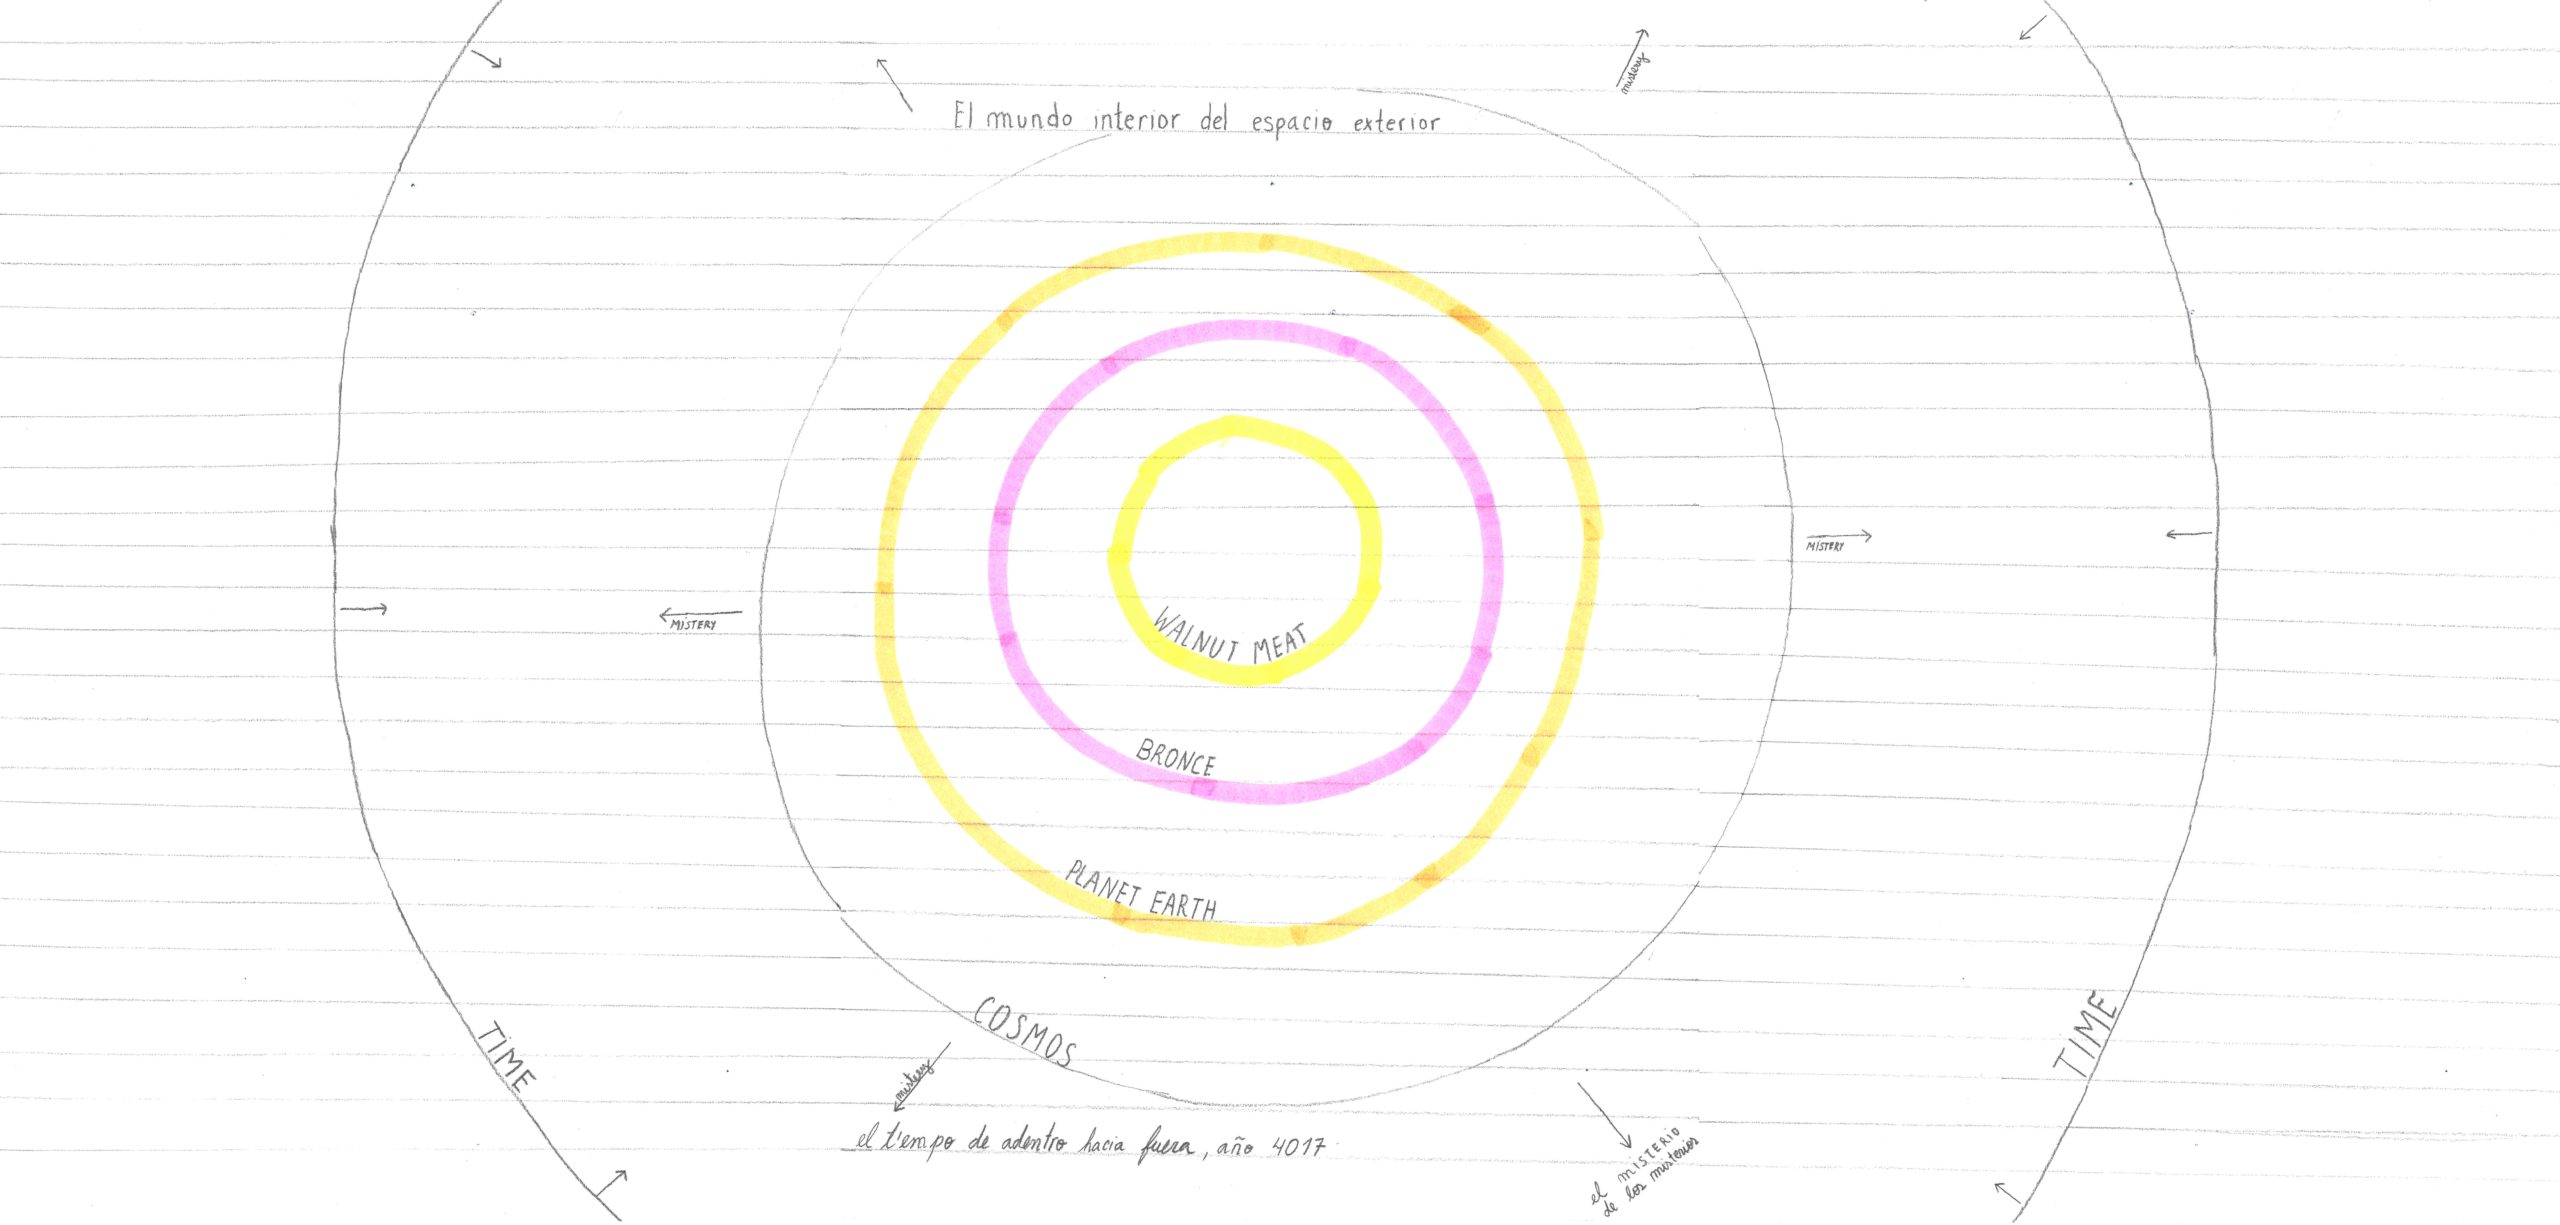 mistery
El mundo interior del espacio exterior
MISTERY
MISTERY
WALNUT MEAT
BRONCE
PLANET EARTH
COSMOS
TIME
TIME
mistery
el tiempo de adentro hacia fuera, año 4017
el MISTERIO
de los misterios